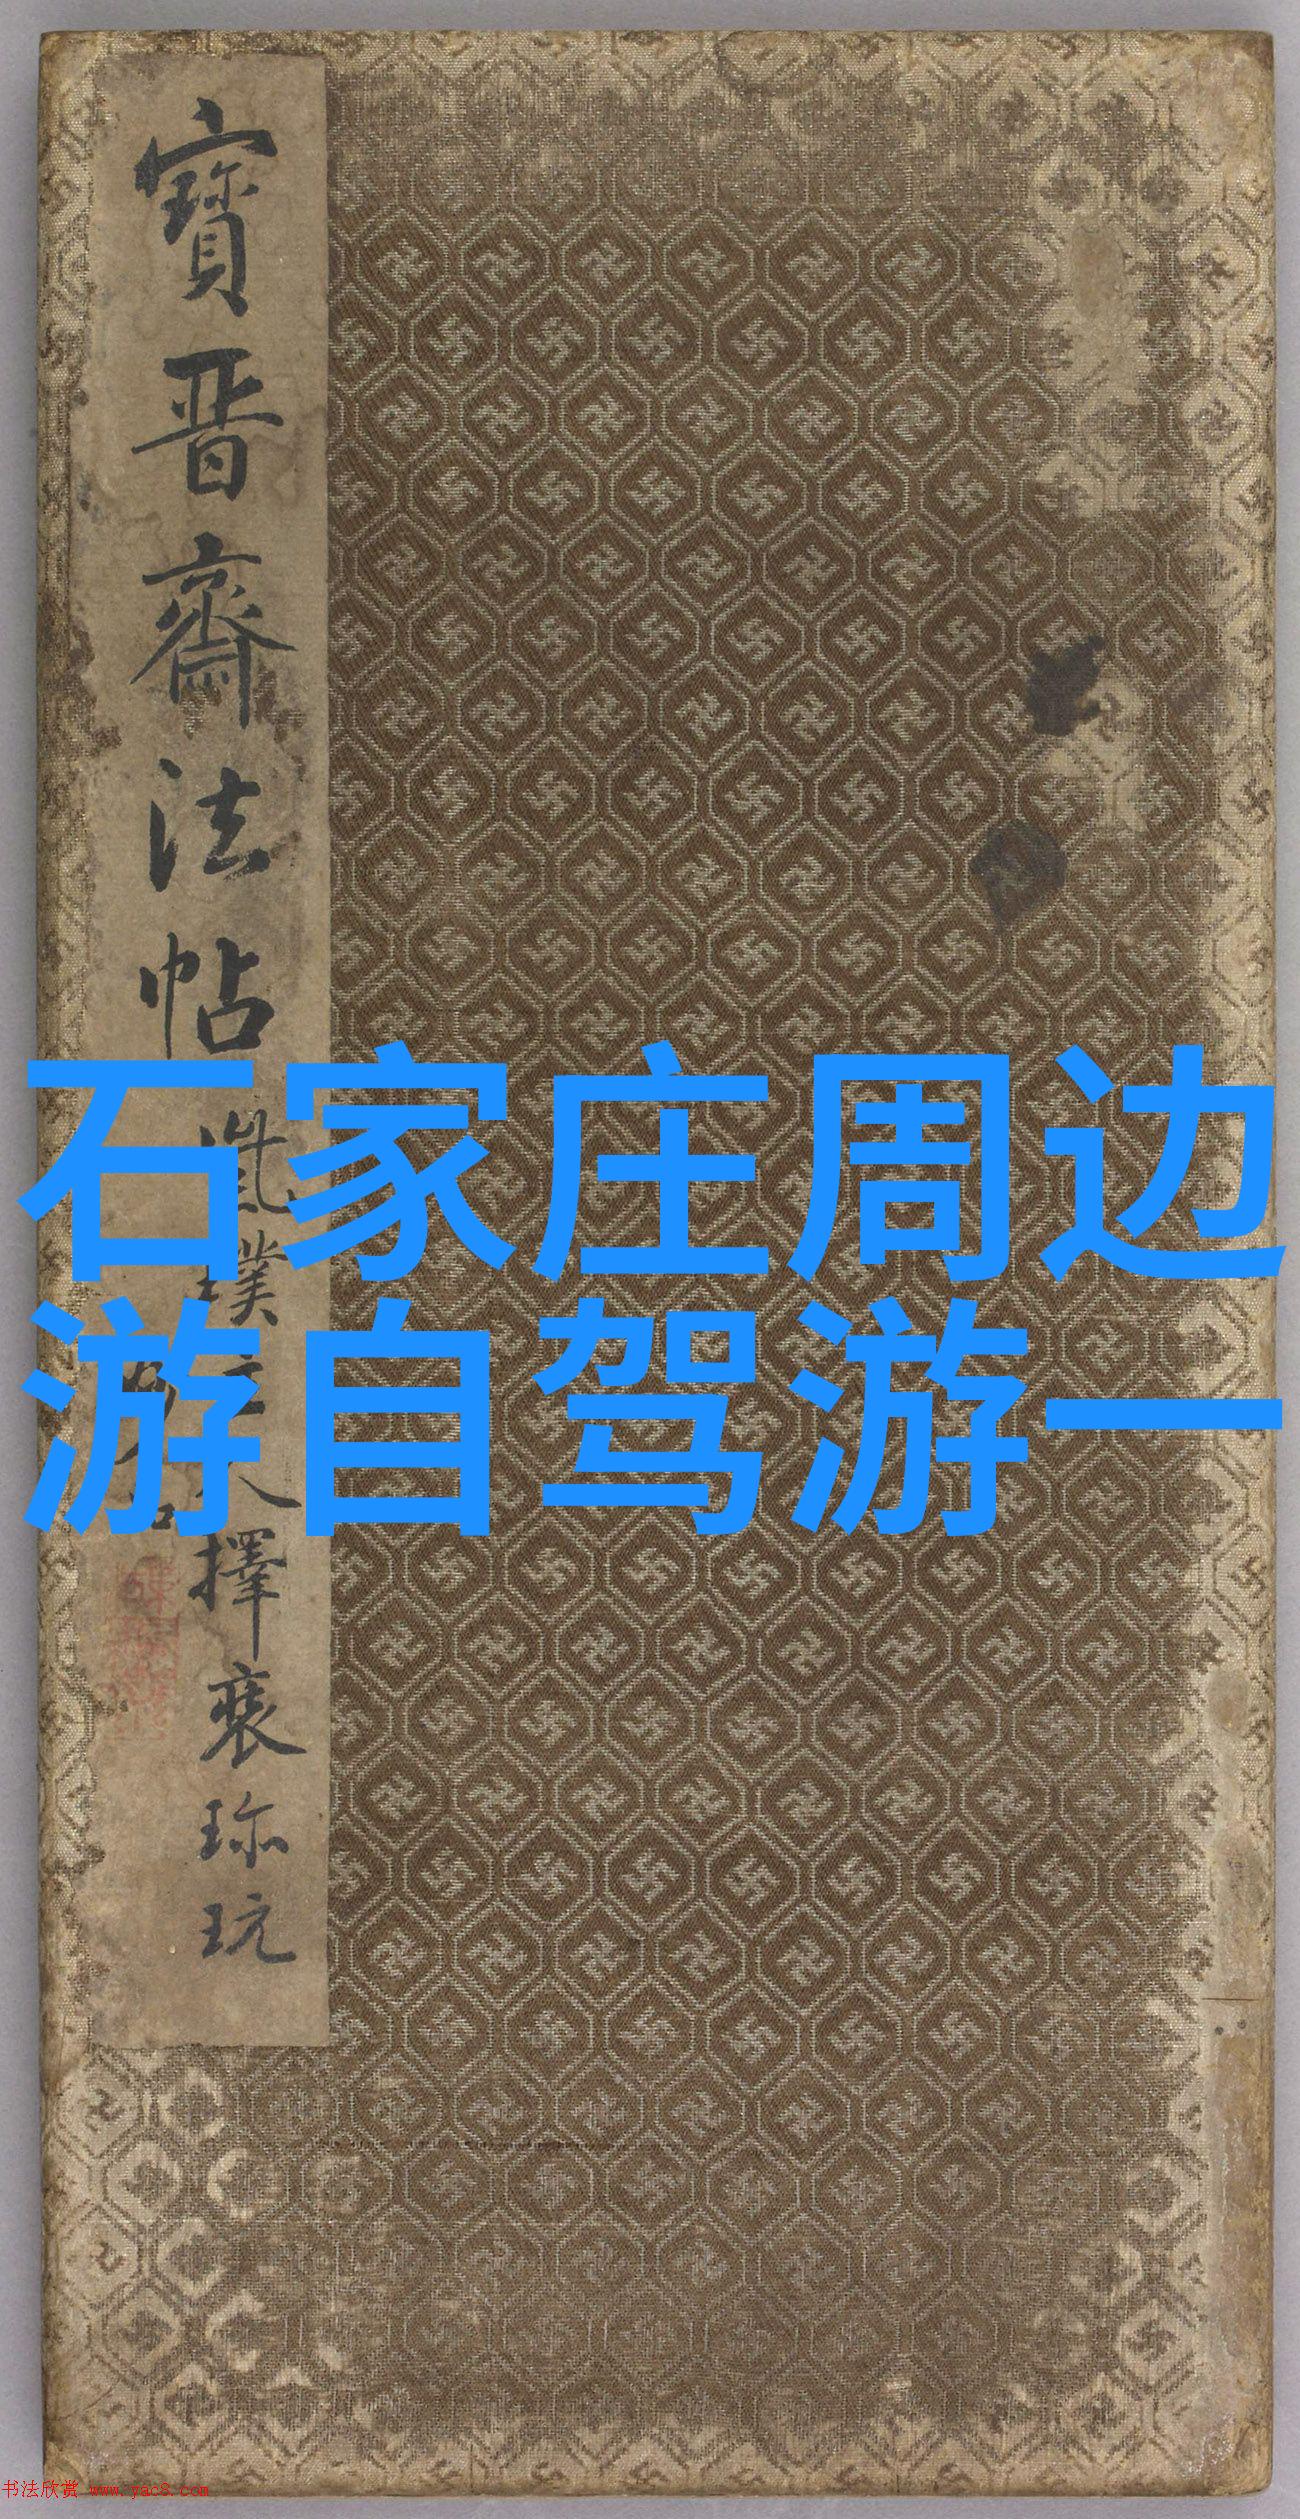 寶晋齋法帖
石家庄周边
游自驾游一
擇裘珎玩
书法欣赏 www.yac8.com